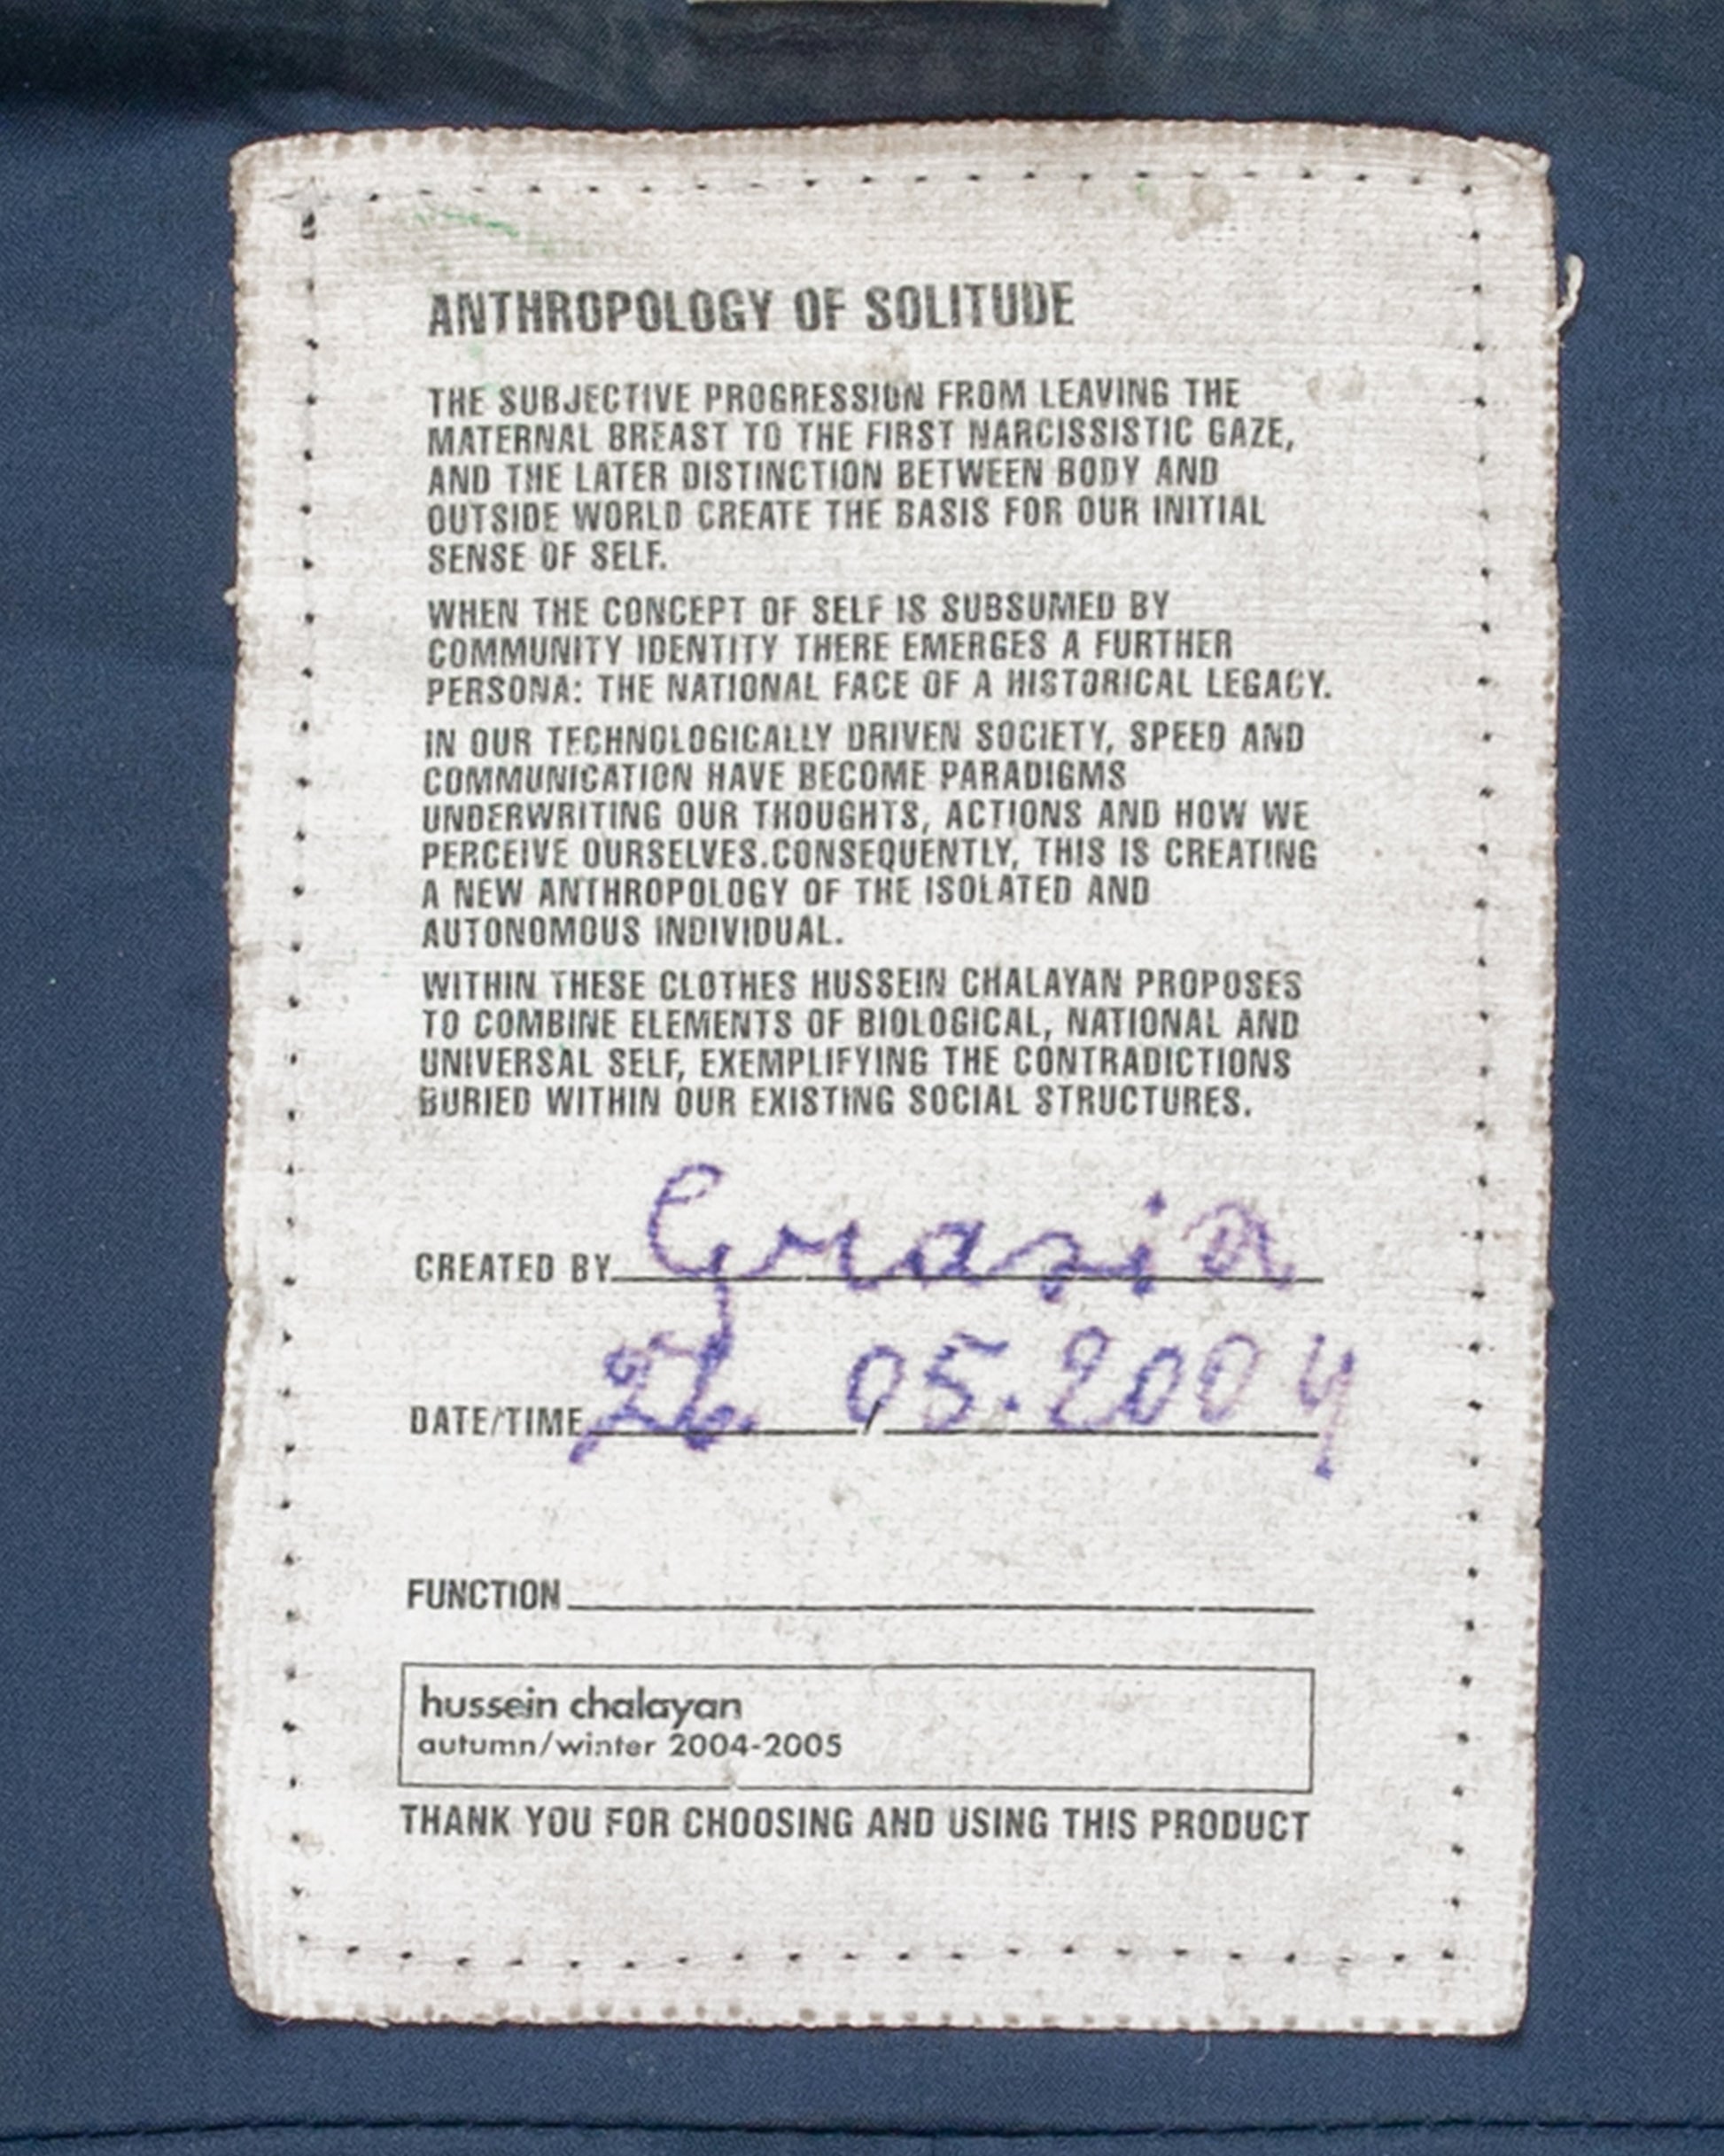 ANTHROPOLOGY OF SOLITUDE
THE SUBJECTIVE PROGRESSION FROM LEAVING THE
MATERNAL BREAST TO THE FIRST NARCISSISTIC GAZE,
AND THE LATER DISTINCTION BETWEEN BODY AND
OUTSIDE WORLD CREATE THE BASIS FOR OUR INITIAL
SENSE OF SELF.
WHEN THE CONCEPT OF SELF IS SUBSUMED BY
COMMUNITY IDENTITY THERE EMERGES A FURTHER
PERSONA: THE NATIONAL FACE OF A HISTORICAL LEGACY.
IN OUR TECHNOLOGICALLY DRIVEN SOCIETY, SPEED AND
COMMUNICATION HAVE BECOME PARADIGMS
UNDERWRITING OUR THOUGHTS, ACTIONS AND HOW WE
PERCEIVE OURSELVES.CONSEQUENTLY, THIS IS CREATING
A NEW ANTHROPOLOGY OF THE ISOLATED AND
AUTONOMOUS INDIVIDUAL.
WITHIN THESE CLOTHES HUSSEIN CHALAYAN PROPOSES
TO COMBINE ELEMENTS OF BIOLOGICAL, NATIONAL AND
UNIVERSAL SELF, EXEMPLIFYING THE CONTRADICTIONS
BURIED WITHIN OUR EXISTING SOCIAL STRUCTURES.
CREATED BY Grazia
DATE/TIME 26 / 05.2004
FUNCTION
hussein chalayan
autumn/winter 2004-2005
THANK YOU FOR CHOOSING AND USING THIS PRODUCT